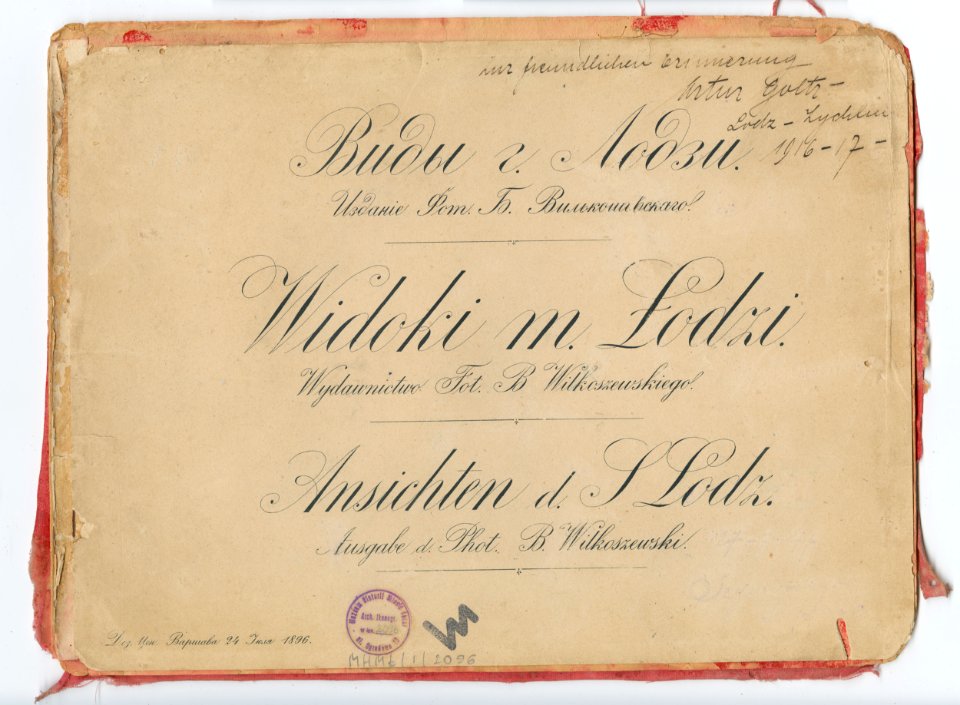 zur freundlichen Erinnerung
Artur Goltz –
Lodz – Zychlin
1916 – 17 –
Виды г. Лодзи.
Изданіе Фот. Б. Вильконшевскаго.
Widoki m. Łodzi.
Wydawnictwo Fot. B Wilkoszewskiego.
Ansichten d. S Lodz.
Ausgabe d. Phot. B. Wilkoszewski.
Muzeum Historii Miasta Łodzi
Дозв. Цен. Варшава 24 Іюля 1896.
MHMŁ/I/2096